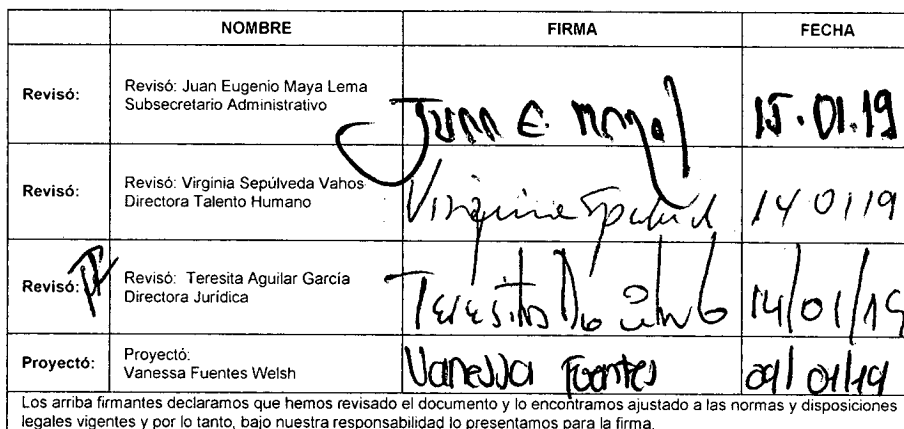 NOMBRE FIRMA FECHA
Revisó: Revisó: Juan Eugenio Maya Lema
Subsecretario Administrativo
Juan E. Maya L 15.01.19
Revisó: Revisó: Virginia Sepúlveda Vahos
Directora Talento Humano
Virginia 14 01 19
Revisó: Revisó: Teresita Aguilar García
Directora Jurídica
Teresita 14/01/19
Proyectó: Proyectó:
Vanessa Fuentes Welsh
Vanessa Fuentes 09/01/19
Los arriba firmantes declaramos que hemos revisado el documento y lo encontramos ajustado a las normas y disposiciones
legales vigentes y por lo tanto, bajo nuestra responsabilidad lo presentamos para la firma.